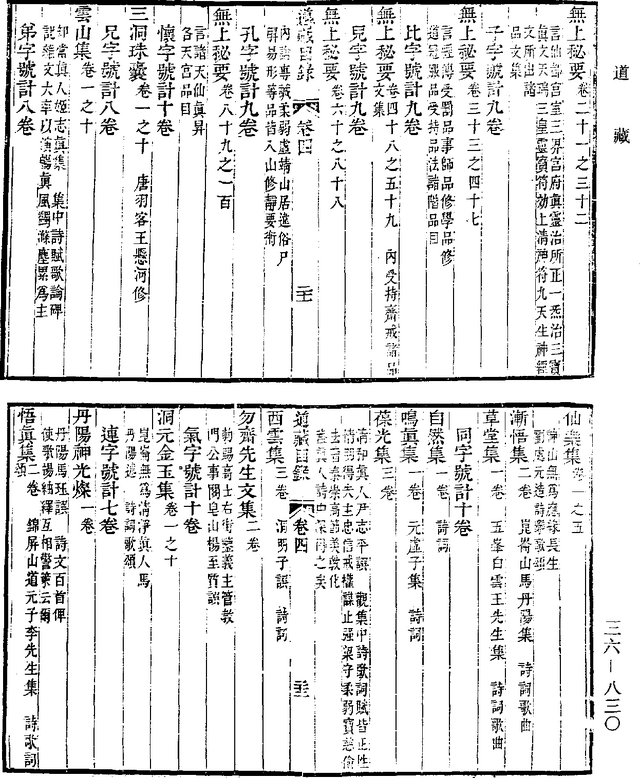 道藏
無上秘要 卷二十一之三十二
言仙都宮室三界宮府眞靈治所正一炁治三寶
眞文天瑞三皇靈寶符効上清神符九天生神經
文所出諸
品文集
子字號計九卷
無上秘要 卷三十三之四十七
言經傳受罰品事師品修學品修
道冠服品受持品法諸階品目
比字號計九卷
無上秘要 卷四十八之五十九 內受持齋戒諸品
文集
兒字號計九卷
無上秘要 卷六十之八十八
道藏目錄 卷四 二十一
內言專誠柔弱虛靖山居違俗尸
解易形等品皆入山修靜要術
孔字號計九卷
無上秘要 卷八十九之一百
言諸天仙眞昇
各天宮品目
懷字號計十卷
三洞珠囊 卷一之十 唐羽客王懸河修
兄字號計八卷
雲山集 卷一之十
知常眞人姬志眞集 集中詩賦歌論碑
記雜文大率以演暢眞風蠲滌塵累爲主
弟字號計八卷
仙樂集 卷一之五
神山無爲應緣長生
劉處元造詩樂歌頌
漸悟集 二卷 崑崙山馬丹陽集 詩詞歌曲
草堂集 一卷 五峯白雲王先生集 詩詞歌曲
同字號計十卷
自然集 一卷 詩詞
鳴眞集 一卷 元虛子集 詩詞
葆光集 三卷
清和眞人尹志平譔 觀集中詩歌詞賦皆正性
西雲集 三卷 洞明子譔 詩詞
道藏目錄 卷四 二十二
勿齋先生文集 二卷
勑賜高士右街鑒義主管教
門公事閤皁山楊至質譔
氣字號計十卷
洞元金玉集 卷一之十
崑崙無爲清淨眞人馬
丹陽述 詩詞歌頌
連字號計七卷
丹陽神光燦 一卷
丹陽馬珏譔 詩文百首俾
後歌揚紬釋互相警策云爾
悟眞集 二卷 錦屏山道元子李先生集 詩歌詞
頌
三六—八三〇